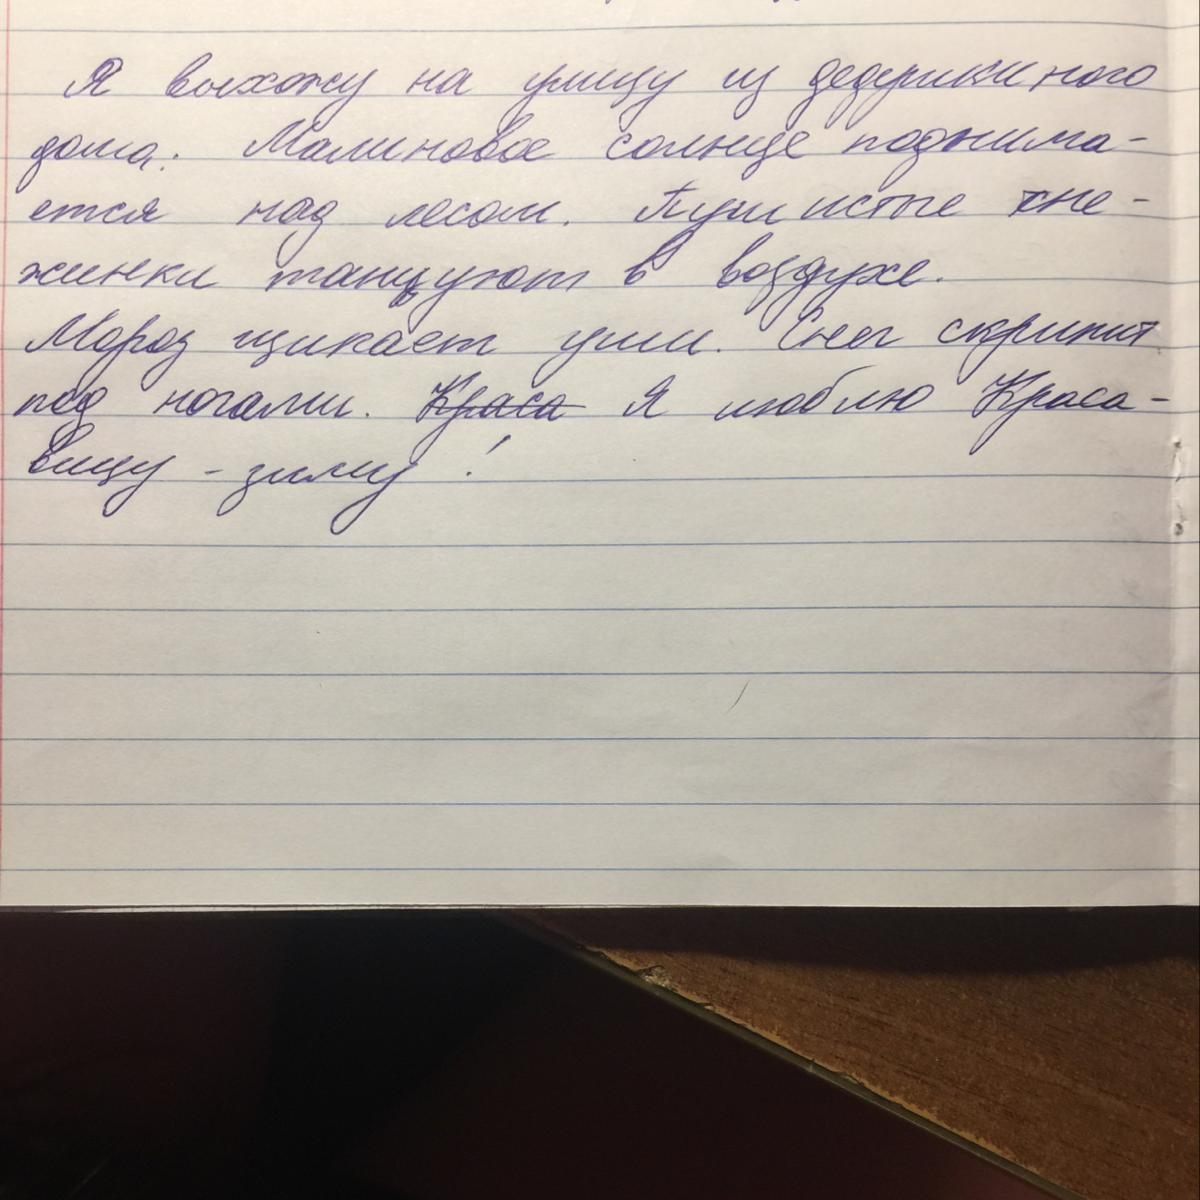 Я выхожу на улицу из дедушкиного
дома. Малиновое солнце поднима-
ется над лесом. Пушистые сне-
жинки танцуют в воздухе.
Мороз щикает уши. Снег скрипит
под ногами. Краса Я люблю Краса-
вицу - зиму!